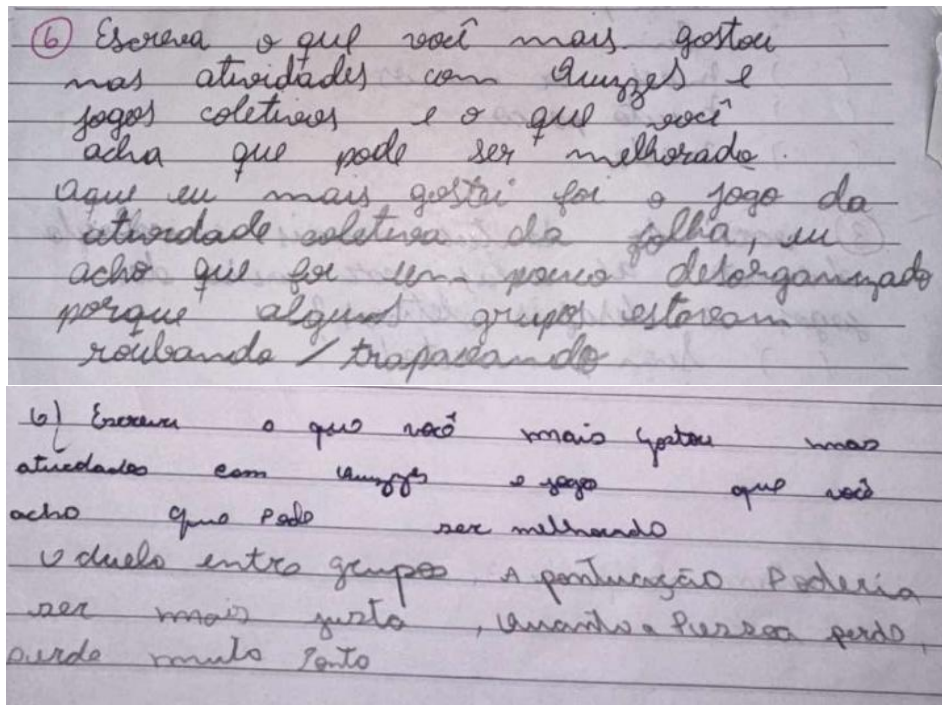 6 Escreva o que você mais gostou
nas atividades com Quizzes e
jogos coletivos e o que você
acha que pode ser melhorado.
aque eu mais gostei foi o jogo da
atividade coletiva da folha, eu
acho que foi um pouco desorganizado
porque alguns grupos estavam
roubando / trapaceando
6) Escreva o que você mais gostou nas
atividades com Quizzes e jogo que você
acho que pode ser melhorado
O duelo entre grupos, A pontuação Poderia
ser mais justa, Quando a Pessoa perde,
perde muito Ponto